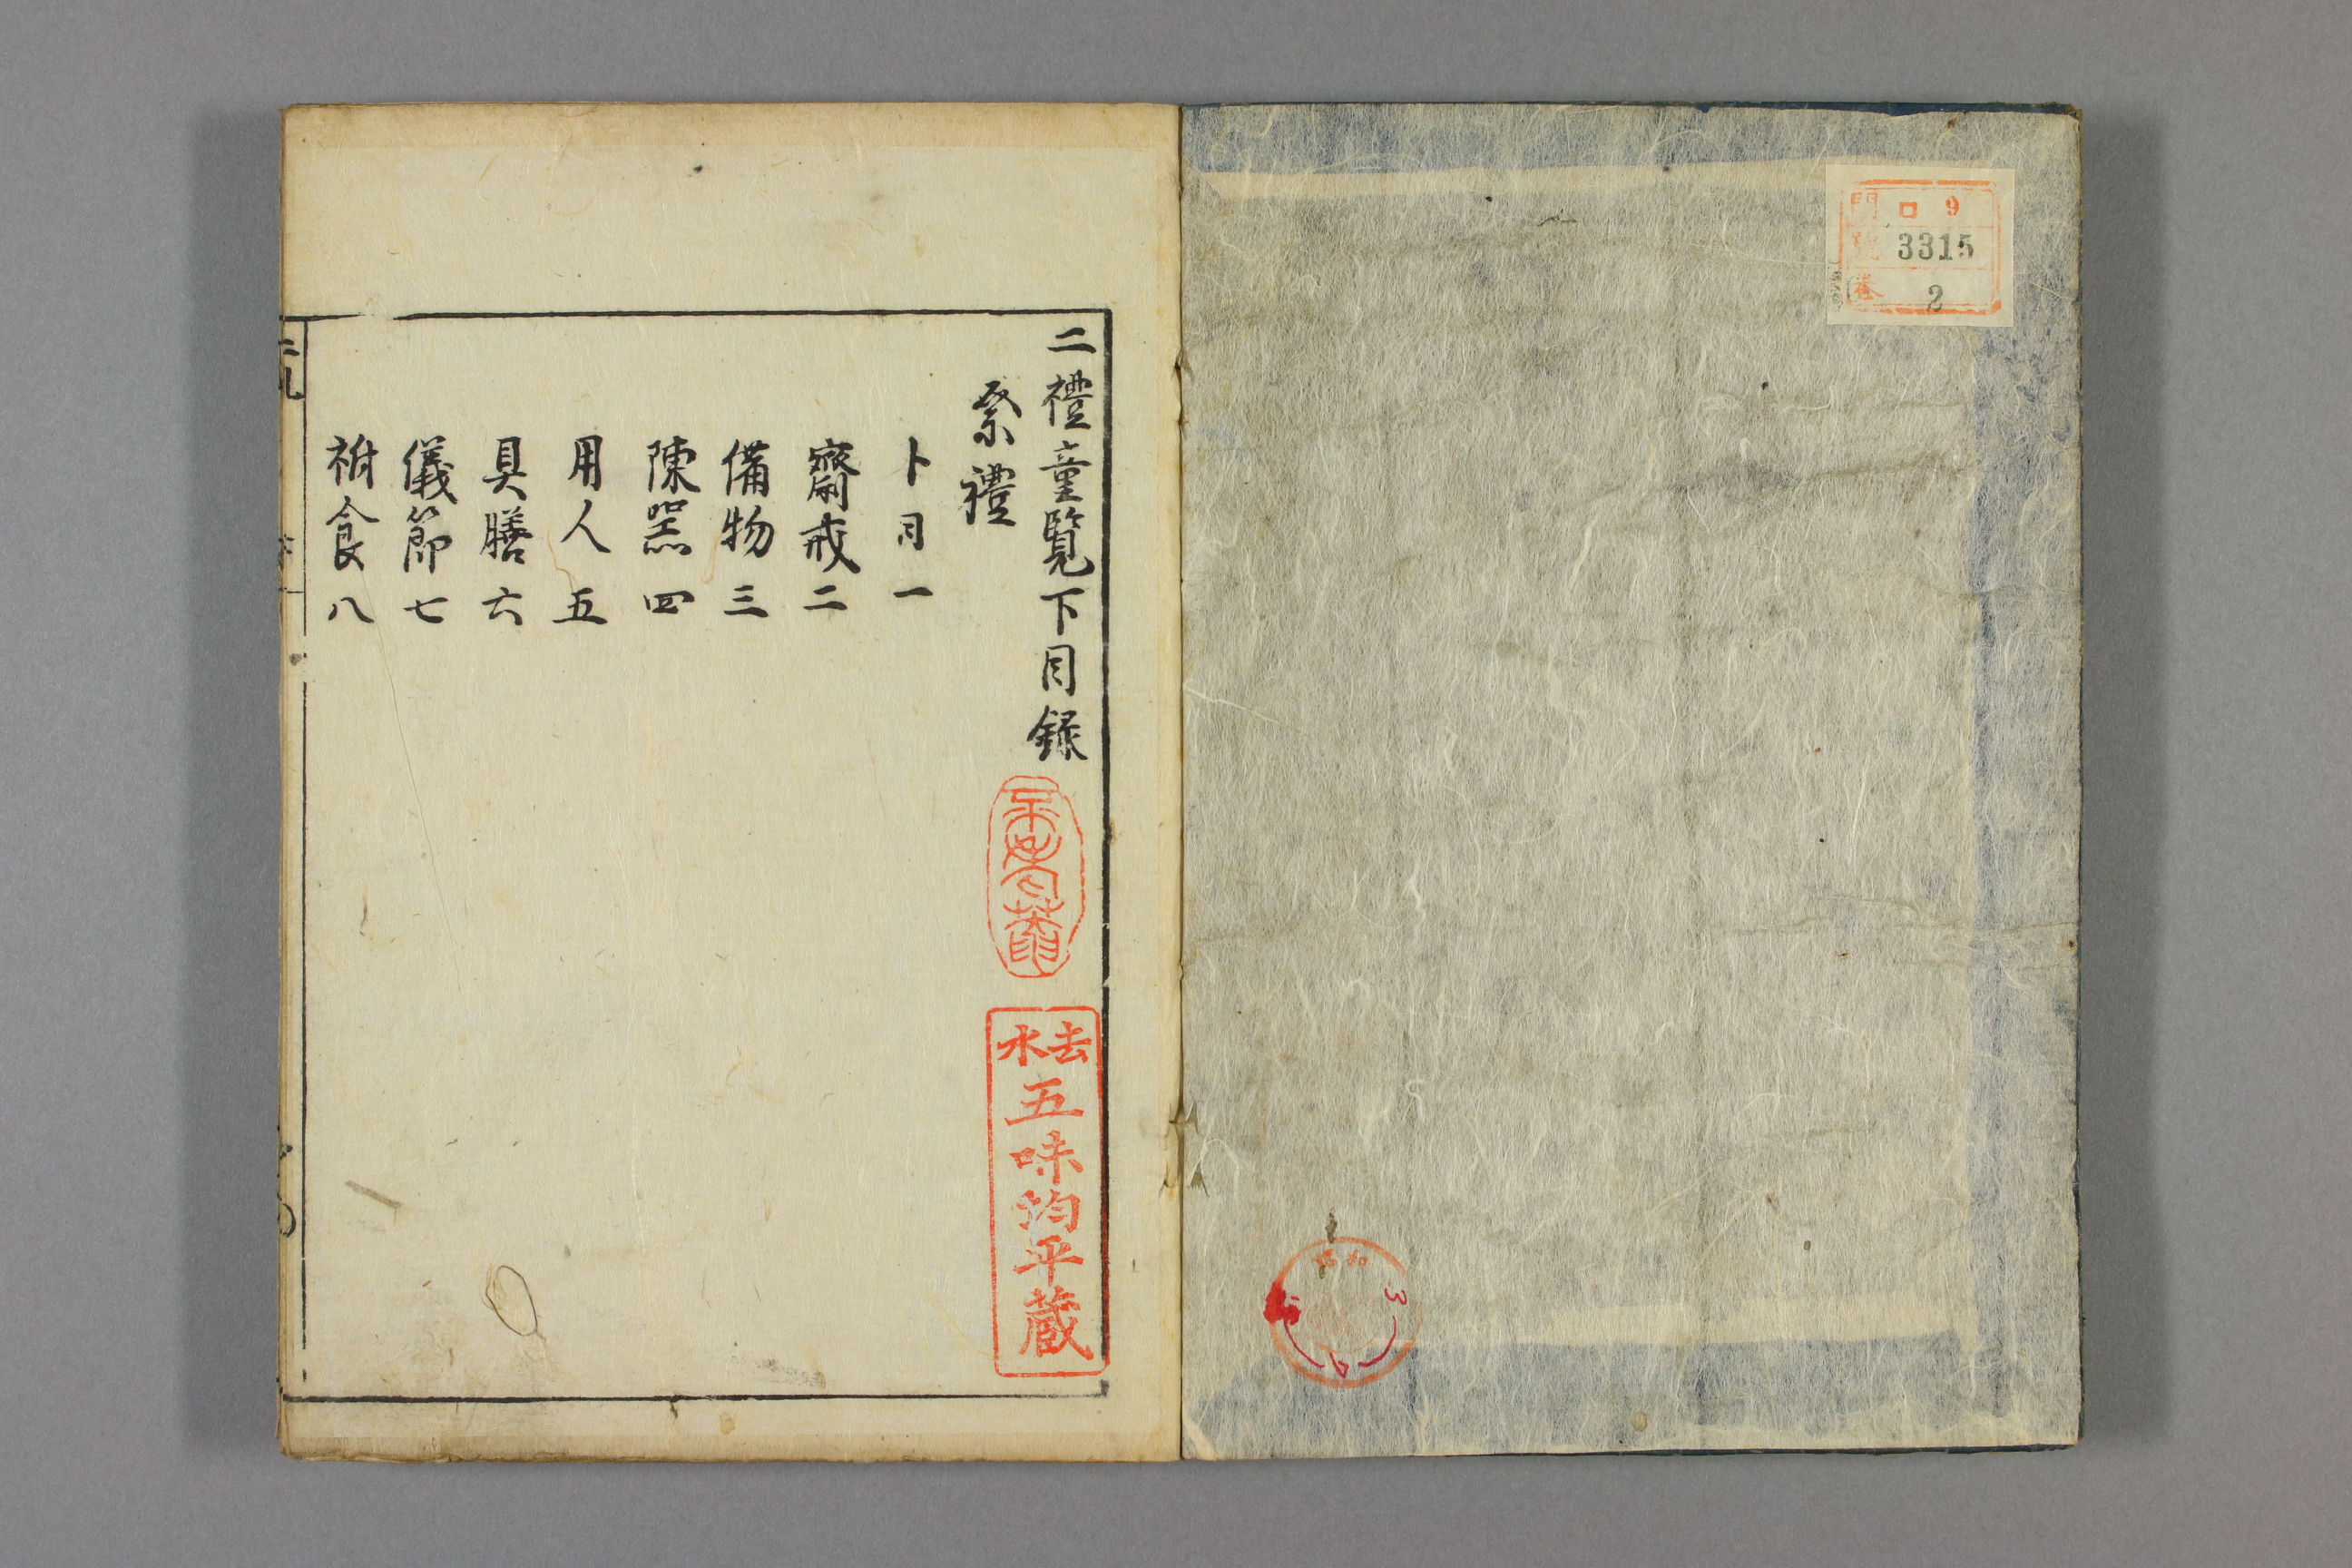 門 ロ 9
號 3315
卷 2
二禮童覧下目録
祭禮
卜日一
齋戒二
備物三
陳器四
用人五
具膳六
儀節七
祔食八
去水
五味均平蔵